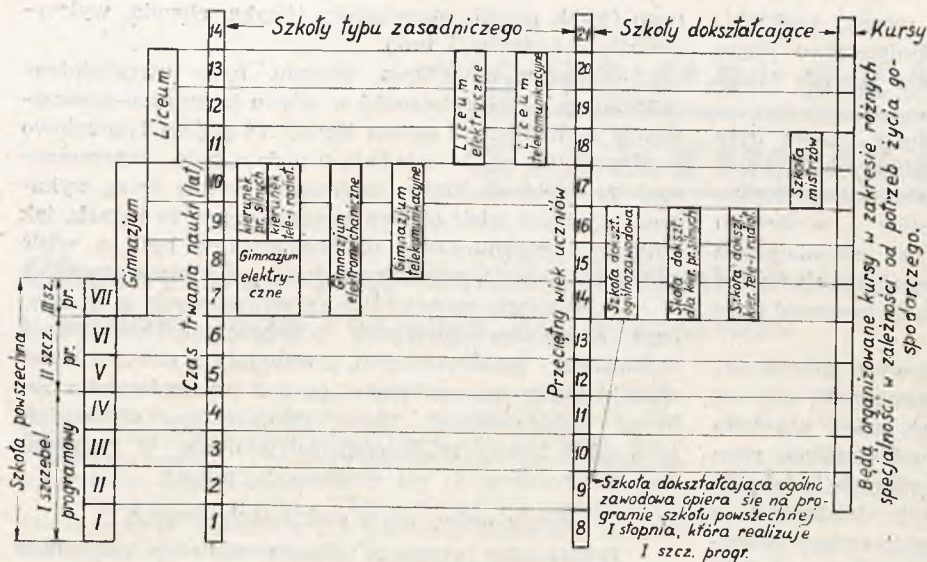 Szkoły typu zasadniczego
Szkoły dokształcające
Kursy
Szkoła powszechna
I szczebel
programowy
II szcz.
pr.
III sz.
pr.
VII
VI
V
IV
III
II
I
Gimnazjum
Liceum
Czas trwania nauki (lat)
14
13
12
11
10
9
8
7
6
5
4
3
2
1
kierunek
pr. silnych
kierunek
tele-i radiot.
Gimnazjum
elektry-
czne
Gimnazjum
elektromechaniczne
Gimnazjum
telekomunikacyjne
Liceum
elektryczne
Liceum
telekomunikacyjne
Przeciętny wiek uczniów
21
20
19
18
17
16
15
14
13
12
11
10
9
8
Szkoła dokszt.
ogólnozawodowa
Szkoła dokszt.
dla kier. pr. silnych
Szkoła dokszt.
kier. tele-i radiot.
Szkoła
mistrzów
Szkoła dokształcająca ogólno
zawodowa opiera się na pro-
gramie szkoły powszechnej
I stopnia, która realizuje
I szcz. progr.
Będą organizowane kursy w zakresie różnych
specjalności w zależności od potrzeb życia go-
spodarczego.